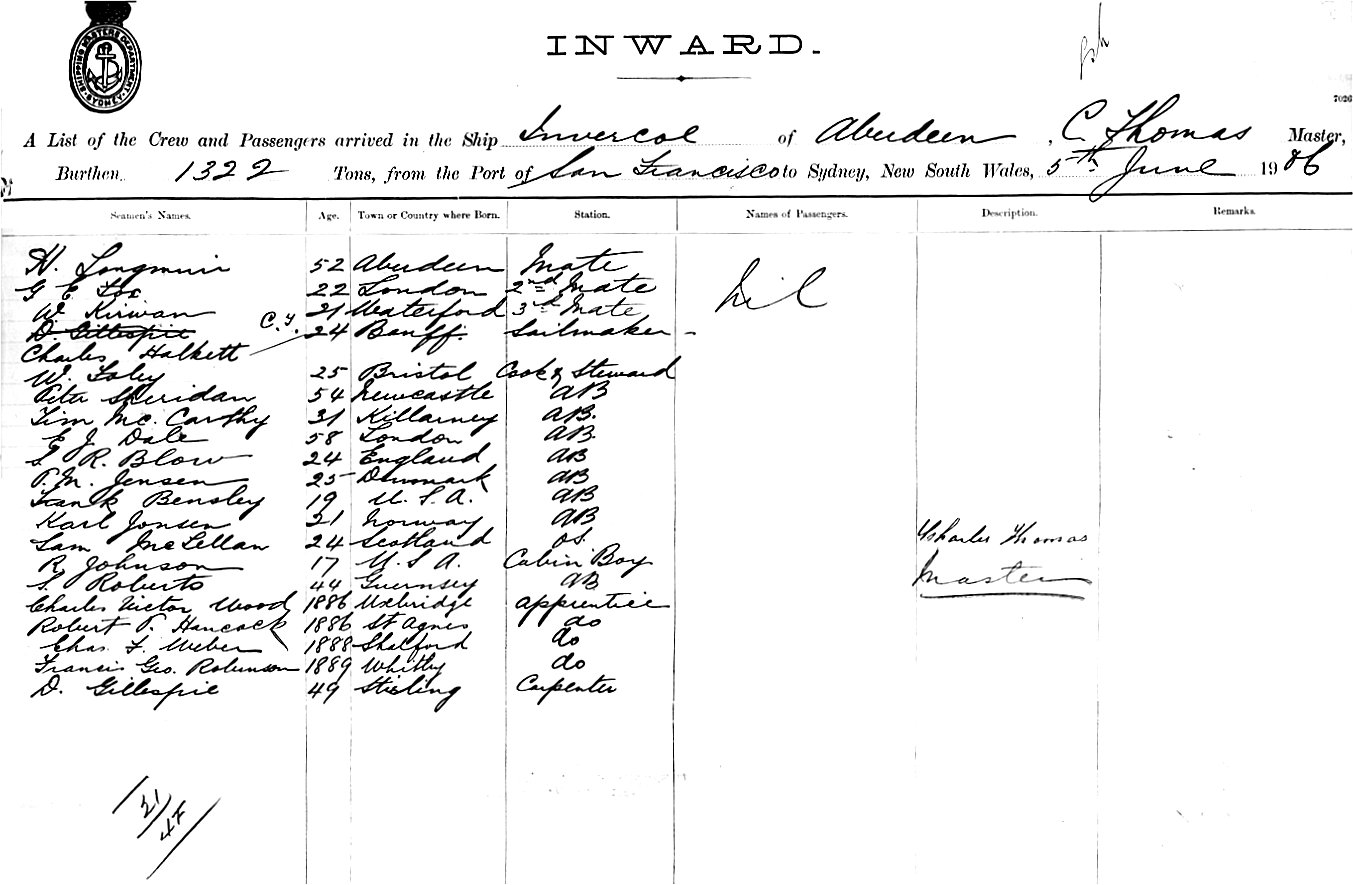 SHIPPING MASTERS DEPARTMENT. SYDNEY.
INWARD.
7026
A List of the Crew and Passengers arrived in the Ship Invercoe of Aberdeen, C. Thomas Master,
Burthen 1322 Tons, from the Port of San Francisco to Sydney, New South Wales, 5th June 1906
Seamen's Names. Age. Town or Country where Born. Station. Names of Passengers. Description. Remarks.
H. Longmuir 52 Aberdeen Mate
G E Fox 22 London 2nd Mate
W. Kirwan 21 Waterford 3rd Mate
Nil
D. Gillespie C.T. 24 Banff. Sailmaker -
Charles Halkett
W. Foley 25 Bristol Cook & Steward
Peter Sheridan 54 Newcastle AB
Tim Mc. Carthy 31 Killarney AB.
E J Dale 58 London AB.
S. R. Blow 24 England AB
P. M. Jensen 25 Denmark AB
Frank Bensley 19 U. S. A. AB
Karl Jonsen 21 Norway AB
Sam McLellan 24 Scotland OS. Charles Thomas
R Johnson 17 U. S A. Cabin Boy Master
S. Roberts 44 Guernsey AB
Charles Victor Wood 1886 Uxbridge Apprentice
Robert P. Hancock 1886 St Agnes do
Chas. F. Weber 1888 Shalford do
Francis Geo. Robinson 1889 Whitby do
D. Gillespie 49 Stirling Carpenter
21/